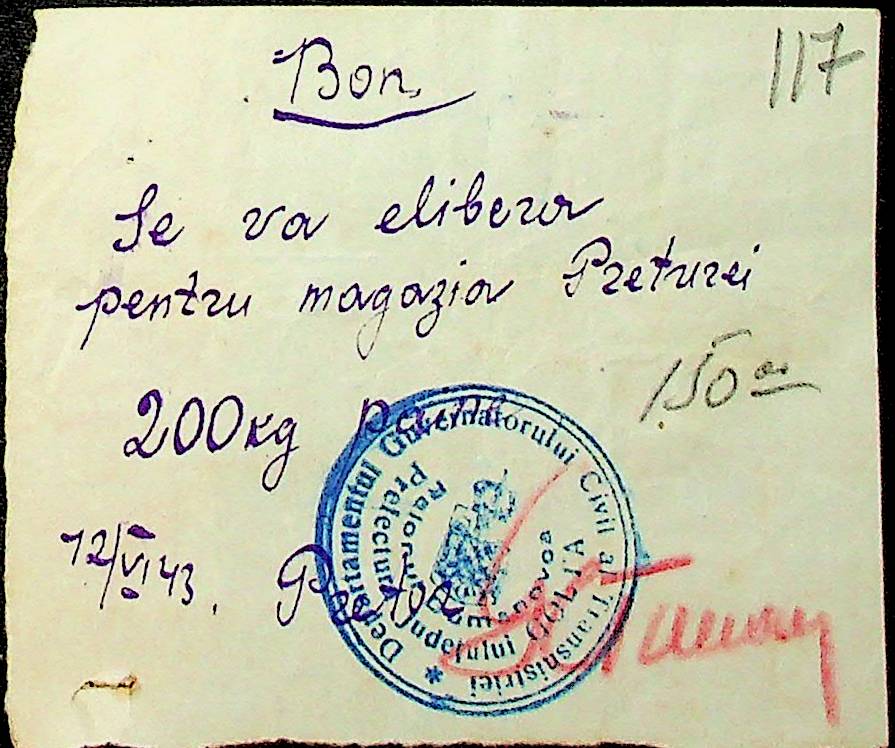 117
Bon
Se va elibera
pentru magazia Preturei
150
200kg paine
12/VI 43. Pretor
Departamentul Guvernatorului Civil a Transnistriei
Prefectura Județului GOLTA
Raionul Domanovca